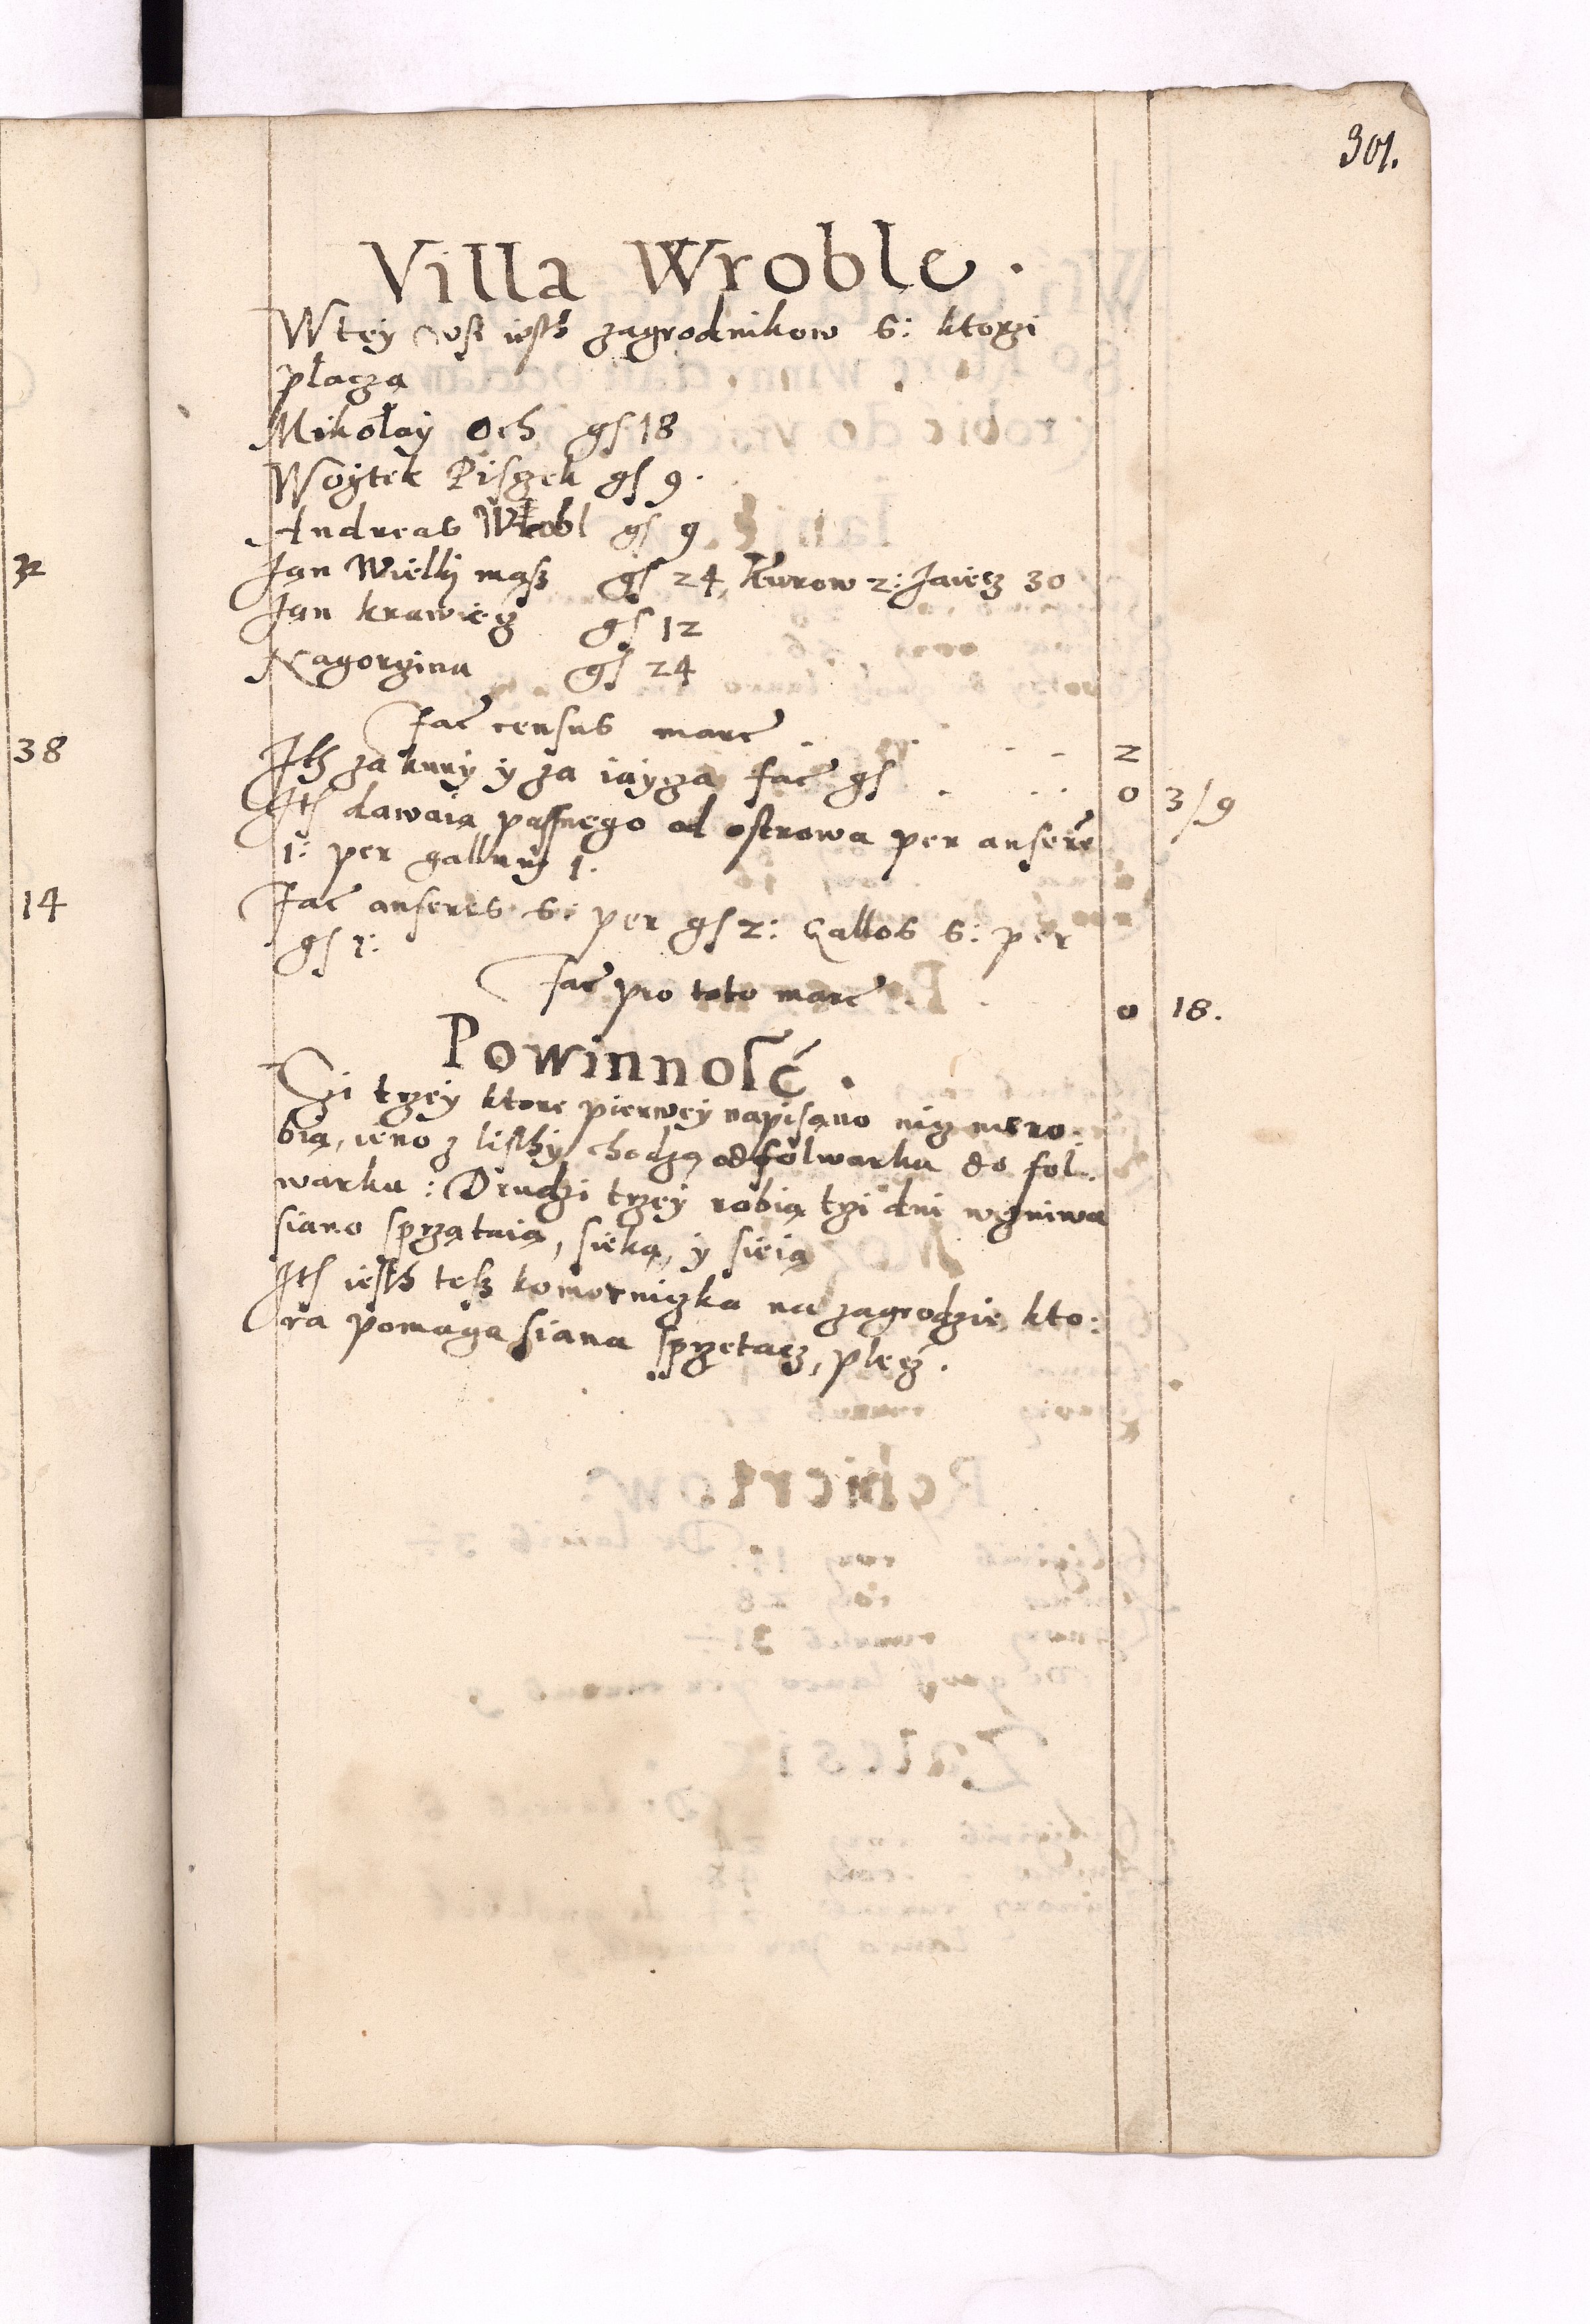 301.
Villa Wroble.
W tey wsi iesth zagrodnikow 6: ktorzi
płaczą
Mikołay Och gs 18
Woytek Piszek gs 9.
Andreas Wrobl gs 9
Jan Wielki mąsz gs 24, Kurow 2: Jaiecz 30
Jan krawiecz gs 12
Nagorzina gs 24
Fac census marc 2
Ith za kury y za iaycza fac gs 0 3/9
Its dawaią passnego od ostrowa per ansere
1: per gallum 1.
Fac anseres 6: per gs 2: Gallos 6: per
gs 1:
fac pro toto marc 0 18.
Powinnosć.
Ci trzey ktore pierwey napisano nicz niero:
bią, ieno z listhy chodzą od folwarku do fol:
warku: Drudzi trzey robią trzi dni w zniwa
siano sprzątaią, sieką, y sieią
Its iesth tesz komorniczka na zagrodzie, kto:
ra pomaga siana sprzetacz, plecz.
32
38
14